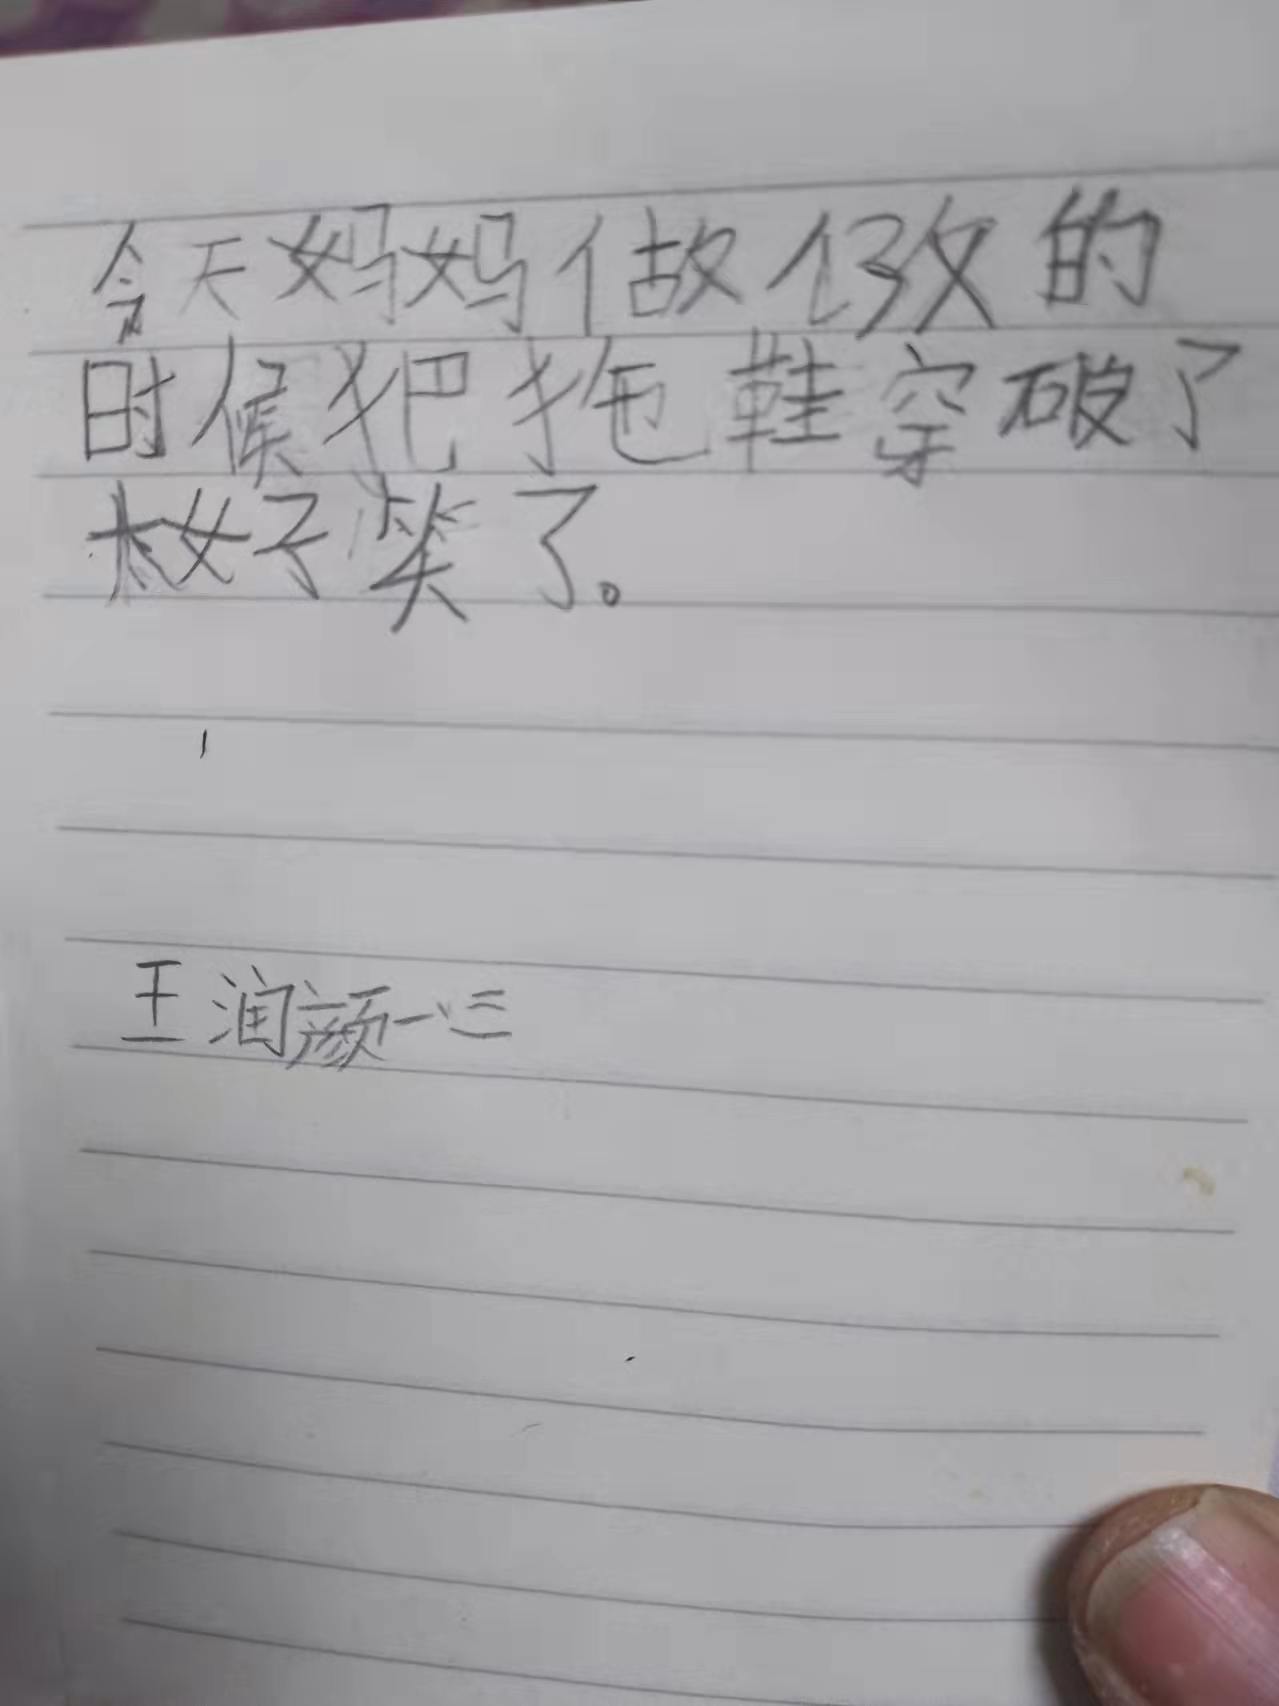 今天妈妈做饭的
时候把拖鞋穿破了
太好笑了。
王润颜一三